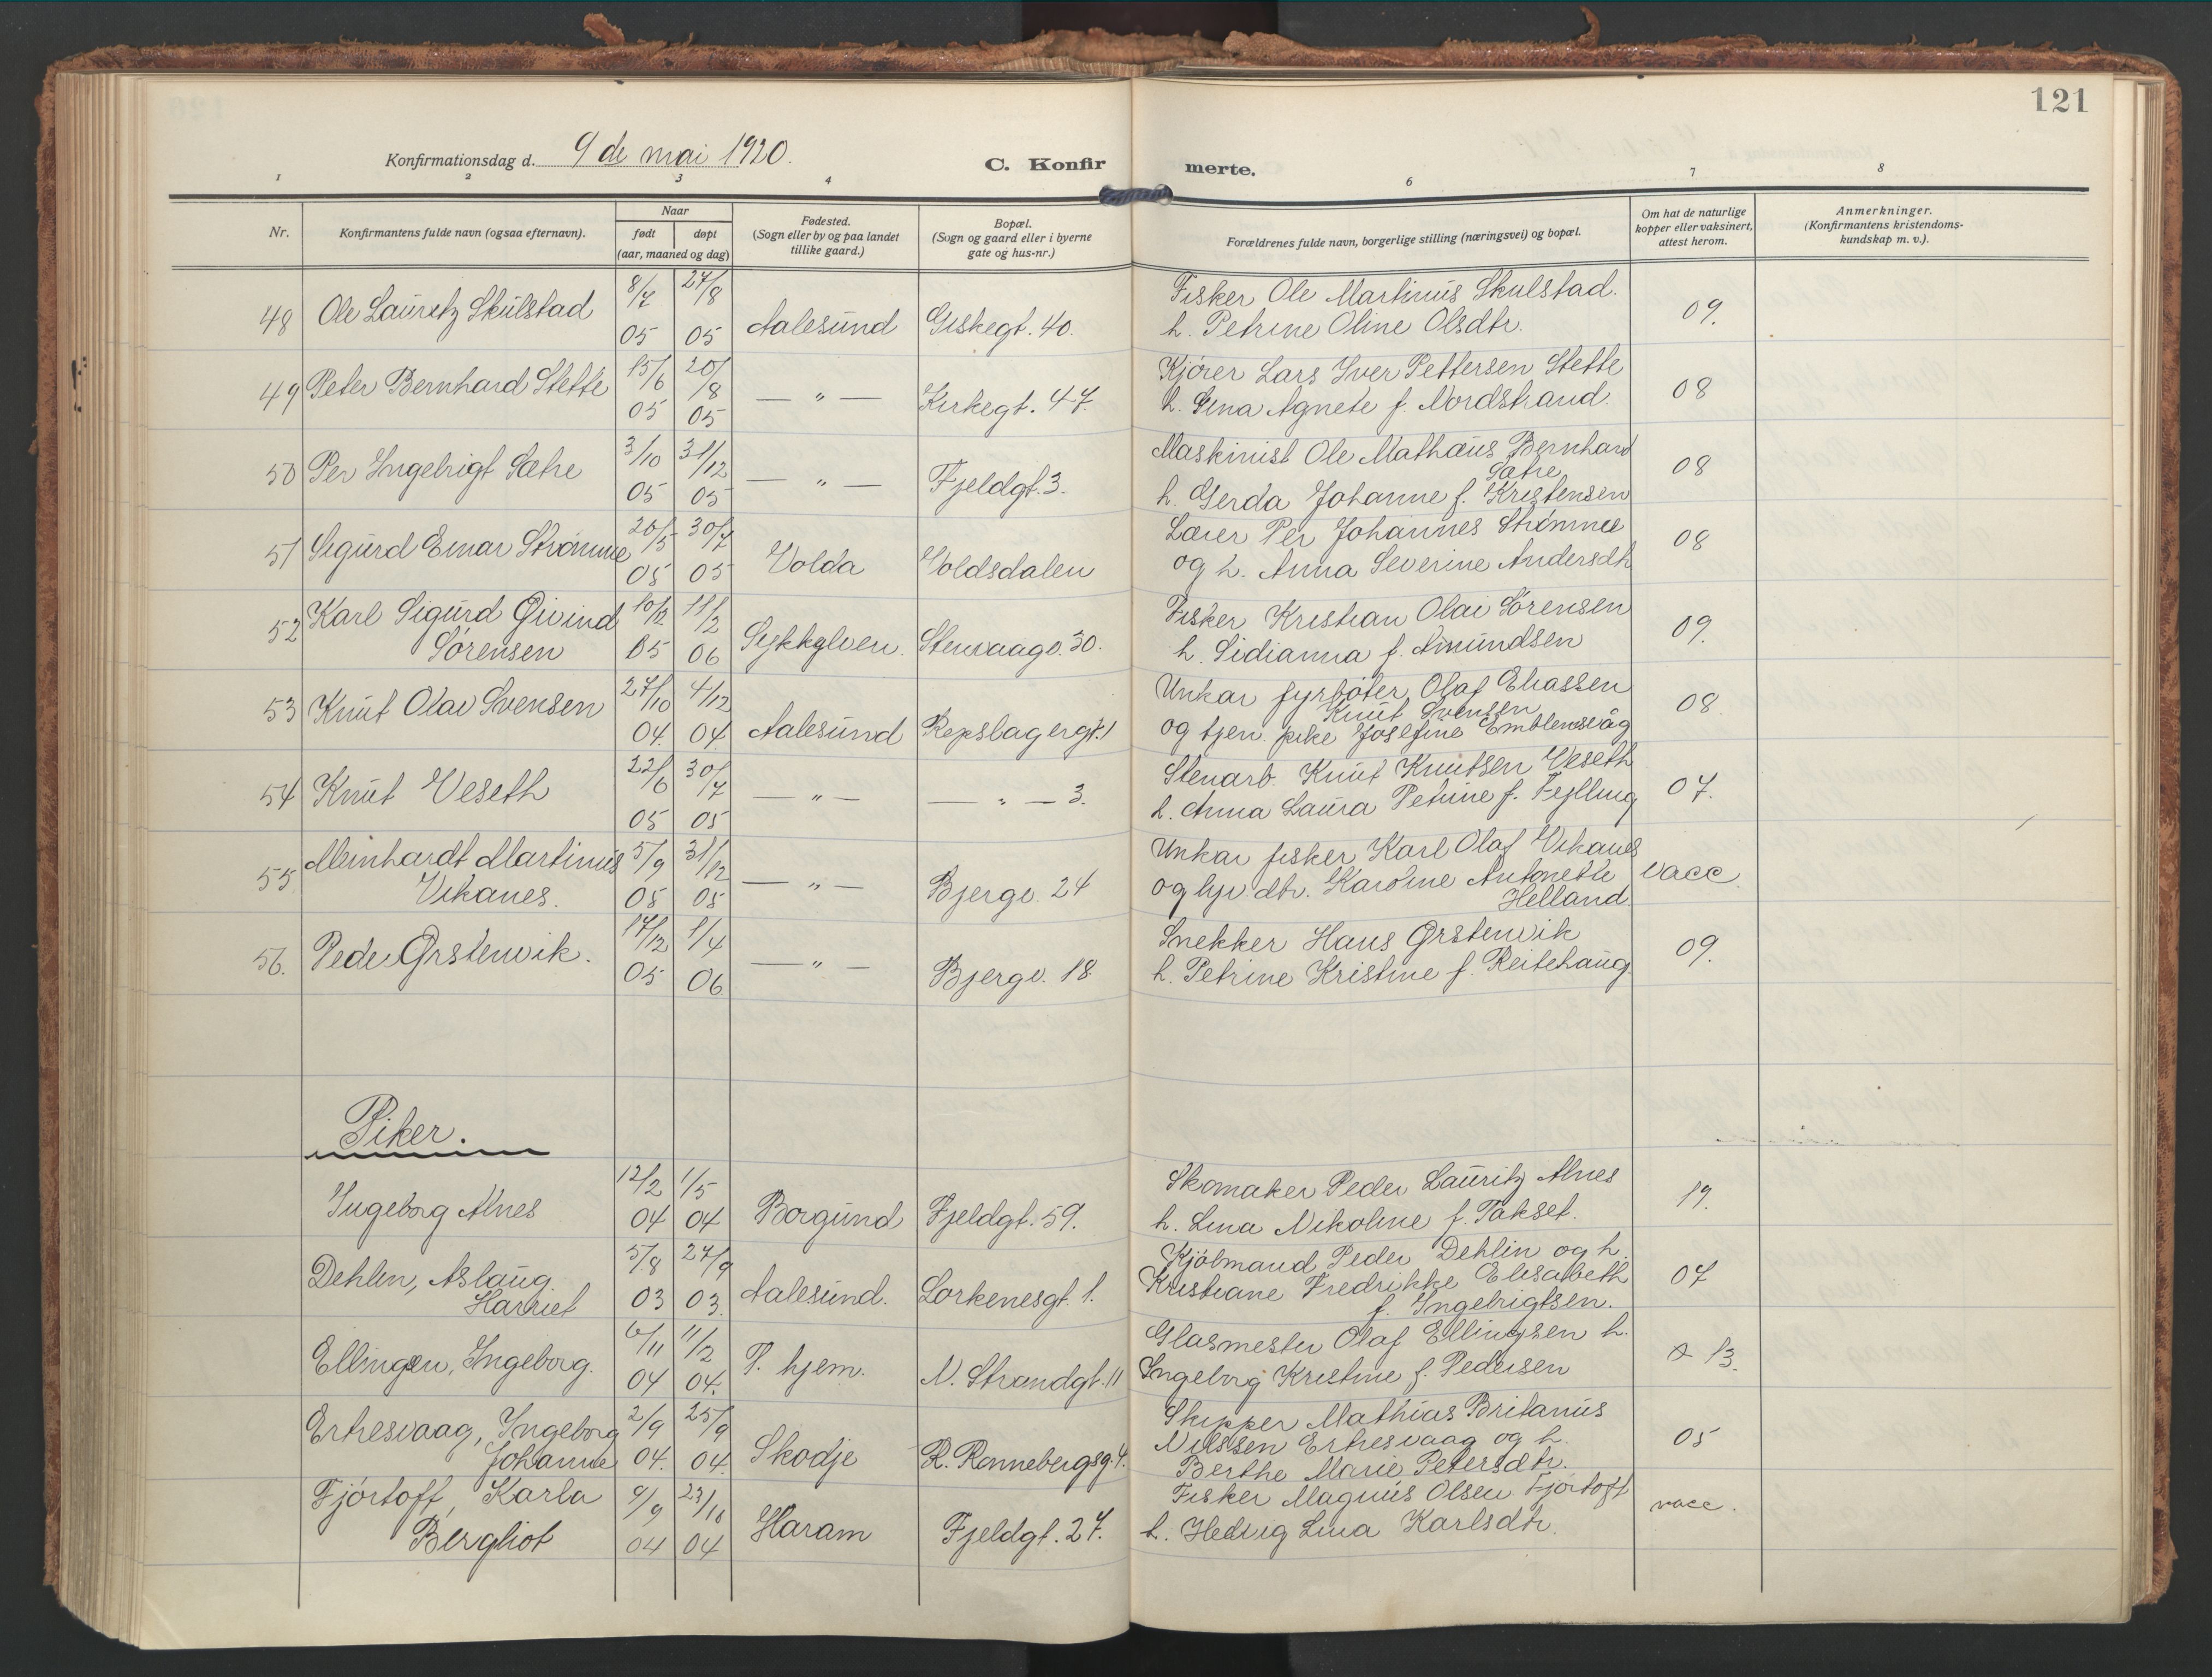 121
Konfirmationsdag d. 9 de mai 1920.
C. Konfirmerte.
1 2 3 4 6 7 8
Nr.
Konfirmantens fulde navn (ogsaa efternavn).
Naar
født døpt
(aar, maaned og dag)
Fødested.
(Sogn eller by og paa landet
tillike gaard.)
Bopæl.
(Sogn og gaard eller i byerne
gate og hus-nr.)
Forældrenes fulde navn, borgerlige stilling (næringsvei) og bopæl.
Om hat de naturlige
kopper eller vaksinert,
attest herom.
Anmerkninger.
(Konfirmantens kristendoms-
kundskap m. v.).
48 Ole Lauritz Skulstad 8/7 05 27/8 05 Aalesund Giskegt. 40.
Fisker Ole Martinus Skulstad.
h. Petrine Oline Olsdtr.
09.
49 Peter Bernhard Stette 15/6 05 20/8 05 — " — Kirkegt. 47.
Kjører Lars Iver Pettersen Stette
h. Gina Agnete f. Nordstrand.
08
50 Per Ingebrigt Sætre 3/10 05 31/12 05 — " — Fjeldgt. 3.
Maskinist Ole Mathæus Bernhard
Sætre
h. Gerda Johanne f. Kristensen
08
51 Sigurd Einar Strømme 20/5 05 30/7 05 Volda Voldsdalen
Lærer Per Johannes Strømme
og h. Anna Severine Andersdtr
08
52 Karl Sigurd Øivind
Sørensen 10/12 05 11/2 06 Sykkylven. Stenvaagv. 30.
Fisker Kristian Olai Sørensen
h. Sidianna f. Amundsen
09.
53 Knut Olav Svensen 27/10 04. 4/12 04. Aalesund Repslagergt. 1
Unkar fyrbøter Olaf Eliassen
Knut Svensen
og tjen. pike Josefine Emblemsvåg
08.
54 Knut Veseth 22/6 05 30/7 05 — " — — " — 3.
Stenarb. Knut Knutsen Veseth
h. Anna Laura Petrine f. Fylling
07.
55 Meinhardt Martinus
Vikanes. 5/9 05 31/12 05 — " — Bjergv. 24
Unkar fisker Karl Olaf Vikanes
og hjv. dtr. Karoline Antonette
Helland.
vacc.
56. Peder Ørstenvik. 17/12 05 1/4 06. — " — Bjergv. 18.
Snekker Hans Ørstenvik
h. Petrine Kristine f. Reitehaug.
09.
Piker.
Ingeborg Alnes 12/2 04 1/5 04 Borgund Fjeldgt. 59.
Skomaker Peder Lauritz Alnes
h. Lina Nikoline f. Takset.
19.
Dehlin, Aslaug
Harriet 5/8 03 27/9 03. Aalesund. Lorkenesgt. 1.
Kjøbmand Peder Dehlin og h.
Kristiane Fredrikke Elisabeth
f. Ingebrigtsen.
07
Ellingsen, Ingeborg. 6/11 04 11/2 04. T. hjem. N. Strandgt. 11
Glasmester Olaf Ellingsen h.
Ingeborg Kristine f. Pedersen
13.
Erkesvaag, Ingeborg
Johanne 2/9 04. 25/9 04. Skodje R. Rønnebergsg. 4.
Skipper Mathias Britanius
Nilssen Erkesvaag og h.
Berthe Marie Petersdtr.
05
Fjørtoft, Karla
Bergliot 9/9 04 23/10 04 Haram Fjeldgt. 27.
Fisker Magnus Olsen Fjørtoft
h. Hedvig Lina Karlsdtr.
vacc.